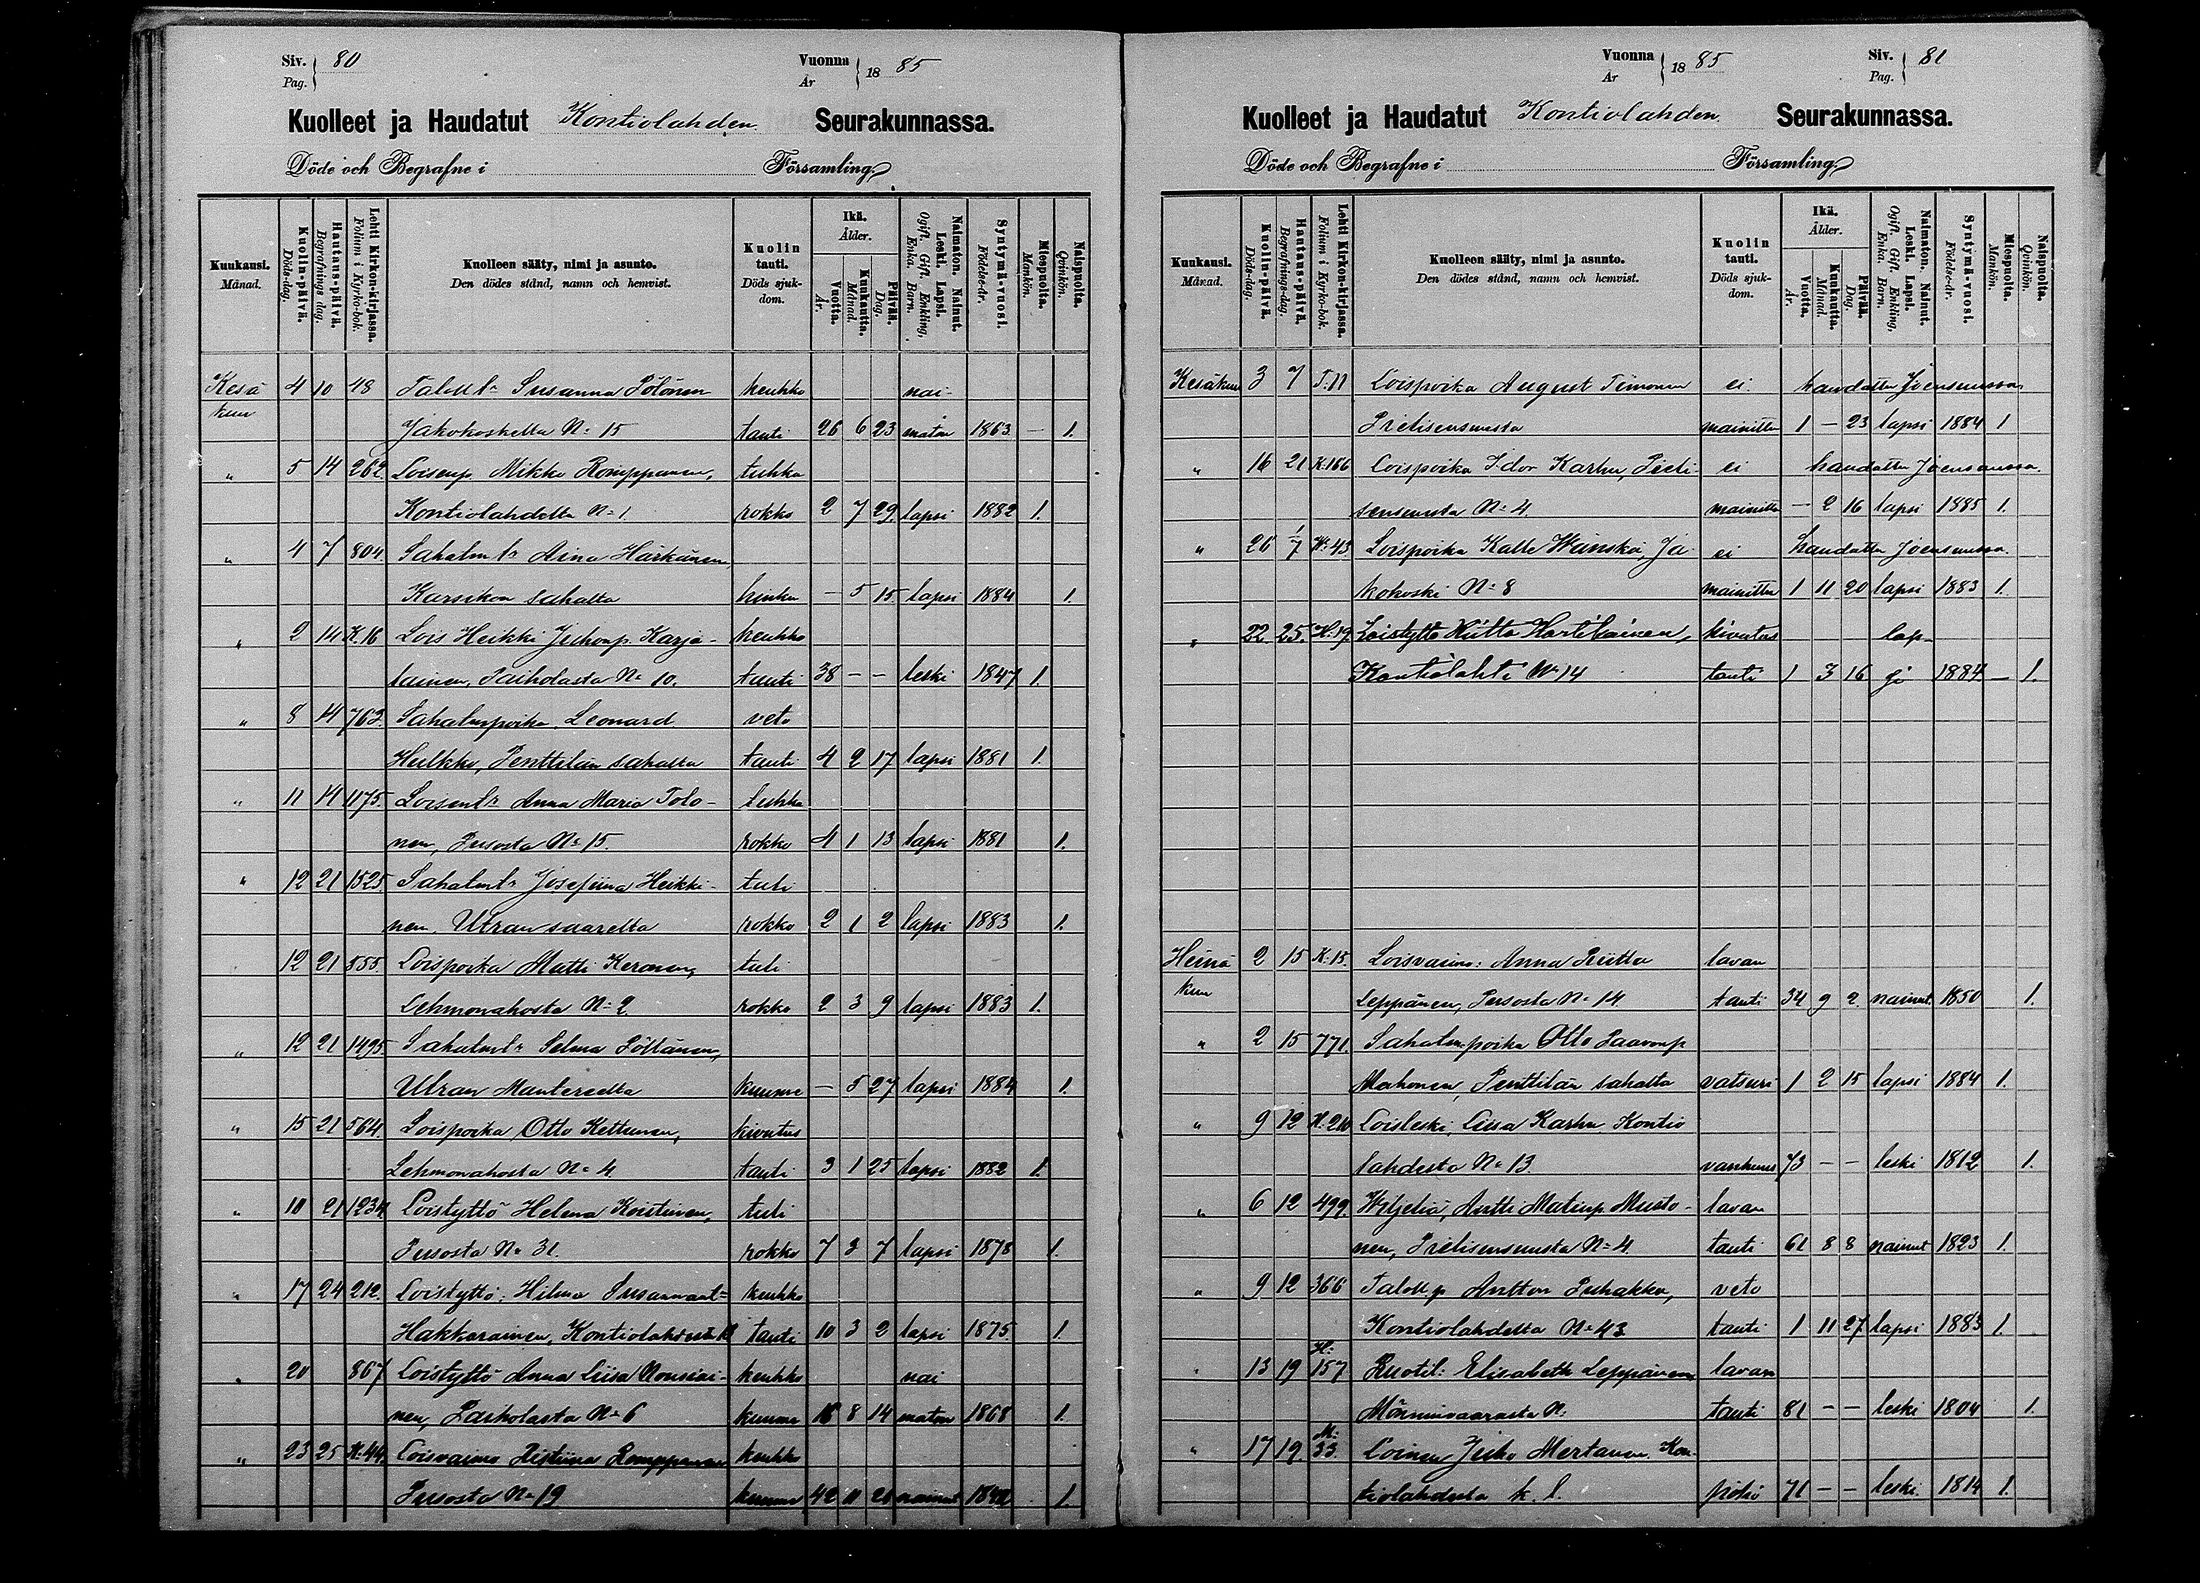 Siv. 80
Pag.
Vuonna 1885
År
Kuolleet ja Haudatut Kontiolahden Seurakunnassa.
Döde och Begrafne i Församling.
Kuukausi. Månad.
Kuolin-päivä. Döds-dag.
Hautaus-päivä. Begrafnings dag.
Lehti Kirkon-kirjassa. Folium i Kyrko-bok.
Kuolleen sääty, nimi ja asunto. Den dödes stånd, namn och hemvist.
Kuolin tauti. Döds sjuk-dom.
Ikä. Ålder.
Vuotta. År.
Kuukautta. Månad.
Päivää. Dag.
Naimaton. Nainut. Leski. Lapsi. Ogift. Gift. Enkling, Enka. Barn.
Syntymä-vuosi. Födelse-år.
Miespuolta. Mankön.
Naispuolta. Qvinkön.
Kesä 4 10 48 Talolltr Susanna Pölönen keuhko nai-
kuu Jakokoskelta No 15 tauti 26 6 23 maton 1863 — 1.
" 5 14 262. Loisenp. Mikko Romppanen, tuhka
Kontiolahdelta No 1 rokko 2 7 29. lapsi 1882 1.
" 4 7 804. Sahalmtr Aina Härkänen
Karsikon sahalta hinku — 5 15. lapsi 1884 1.
" 2 14 K.16 Lois Heikki Juhonp. Karja- keuhko
lainen, Paiholasta No 10. tauti 38 — — leski 1847 1.
" 8 14 763. Sahalmpoika Leonard veto
Hulkko, Penttilän sahalta tauti 4 2 17 lapsi 1881 1.
" 11 14 1175. Loisentr Anna Maria Tolo- tuhka
nen, Pusosta No 15. rokko 4 1 13 lapsi 1881 1.
" 12 21 1525 Sahalmtr Josefiina Heikki- tuli
nen, Utran saarelta rokko 2 1 2 lapsi 1883 1.
12 21 555. Loispoika Matti Keronen, tuli
Lehmonahosta No 2. rokko 2 3 9 lapsi 1883 1.
" 12 21 1495. Sahalmtr Selma Pöllänen,
Utran Mantereelta kuume — 5 27 lapsi 1884 1.
" 15 21 564. Loispoika Otto Kettunen, kivutus
Lehmonahosta No 4. tauti 3 1 25 lapsi 1882 1.
" 10 21 1234. Loistyttö Helena Koistinen, tuli
Pusosta No 31. rokko 7 3 7 lapsi 1878 1.
" 17 24 212. Loistyttö: Hilma Susannant= keuhko
Hakkarainen, tauti 10 3 2 lapsi 1875 1.
" 20 867 Loistyttö Anna Liisa Nousiai- keuhko nai
nen, Paiholasta No 6 kuume 8 14 maton 1868 1.
" 23 25 K.44. Loisvaimo Ristiina Romppanen keuhko
Pusosta No 19 kuume 42 11 nainut 1.
Vuonna 1885
År
Siv. 81
Pag.
Kuolleet ja Haudatut Kontiolahden Seurakunnassa.
Döde och Begrafne i Församling.
Kuukausi. Månad.
Kuolin-päivä. Döds-dag.
Hautaus-päivä. Begrafnings-dag.
Lehti Kirkon-kirjassa. Folium i Kyrko-bok.
Kuolleen sääty, nimi ja asunto. Den dödes stånd, namn och hemvist.
Kuolin tauti. Döds sjuk-dom.
Ikä. Ålder.
Vuotta. År.
Kuukautta. Månad.
Päivää. Dag.
Naimaton. Nainut. Leski. Lapsi. Ogift. Gift. Enkling, Enka. Barn.
Syntymä-vuosi. Födelse-år.
Miespuolta. Mankön.
Naispuolta. Qvinkön.
Kesäkuu 3 7 T.11 Loispoika August Timonen ei haudattu Joensuussa
mainittu 1 — 23 lapsi 1884 1
" 16 21 K.166 Loispoika Idor Karhu, Pieti- ei haudattu Joensuussa.
No 4. mainittu — 2 16 lapsi 1885 1.
" 26 1/7 W.43 Loispoika Kalle Weinska, Ja- ei haudattu Joensuussa.
kokoski No 8 mainittu 1 11 20 lapsi 1883 1.
" 22 25. H.19. Loistyttö Riitta Hartikainen, kivutus lap-
Kontiolahti No 14 tauti 1 3 16 si 1884 — 1.
Heinä 2 15 K.15. Loisvaimo: Anna Riitta lavan
kuu Leppänen, Pusosta No 14. tauti 34 9 2. nainut. 1850 1.
" 2 15 771. Sahalm.poika Otto Paavonp
Mahonen, Penttilän sahalta vatsuri 1 2 15 lapsi 1884 1.
" 9 12 K.210 Loisleski, Liisa Karhu Kontio
lahdesta No 13. vanhuus 73 — — leski 1812 1.
" 6 12 499. Wiljeliä, Antti Matinp Musto- lavan
nen, No 4. tauti 61 8 8 nainut 1823 1.
" 9 12 366 Talollp Antton Puhakka, veto
Kontiolahdelta No 43 tauti 1 11 27 lapsi 1883 1.
" 13 19 H. 157 Ruotil: Elisabeth Leppänen lavan
Mönninvaarasta No: tauti 81 — — leski 1804 1.
" 17 19. M. 33. Loinen Juho Mertanen Kon-
tiolahdesta k. l. pötsi 71 — — leski. 1814 1.